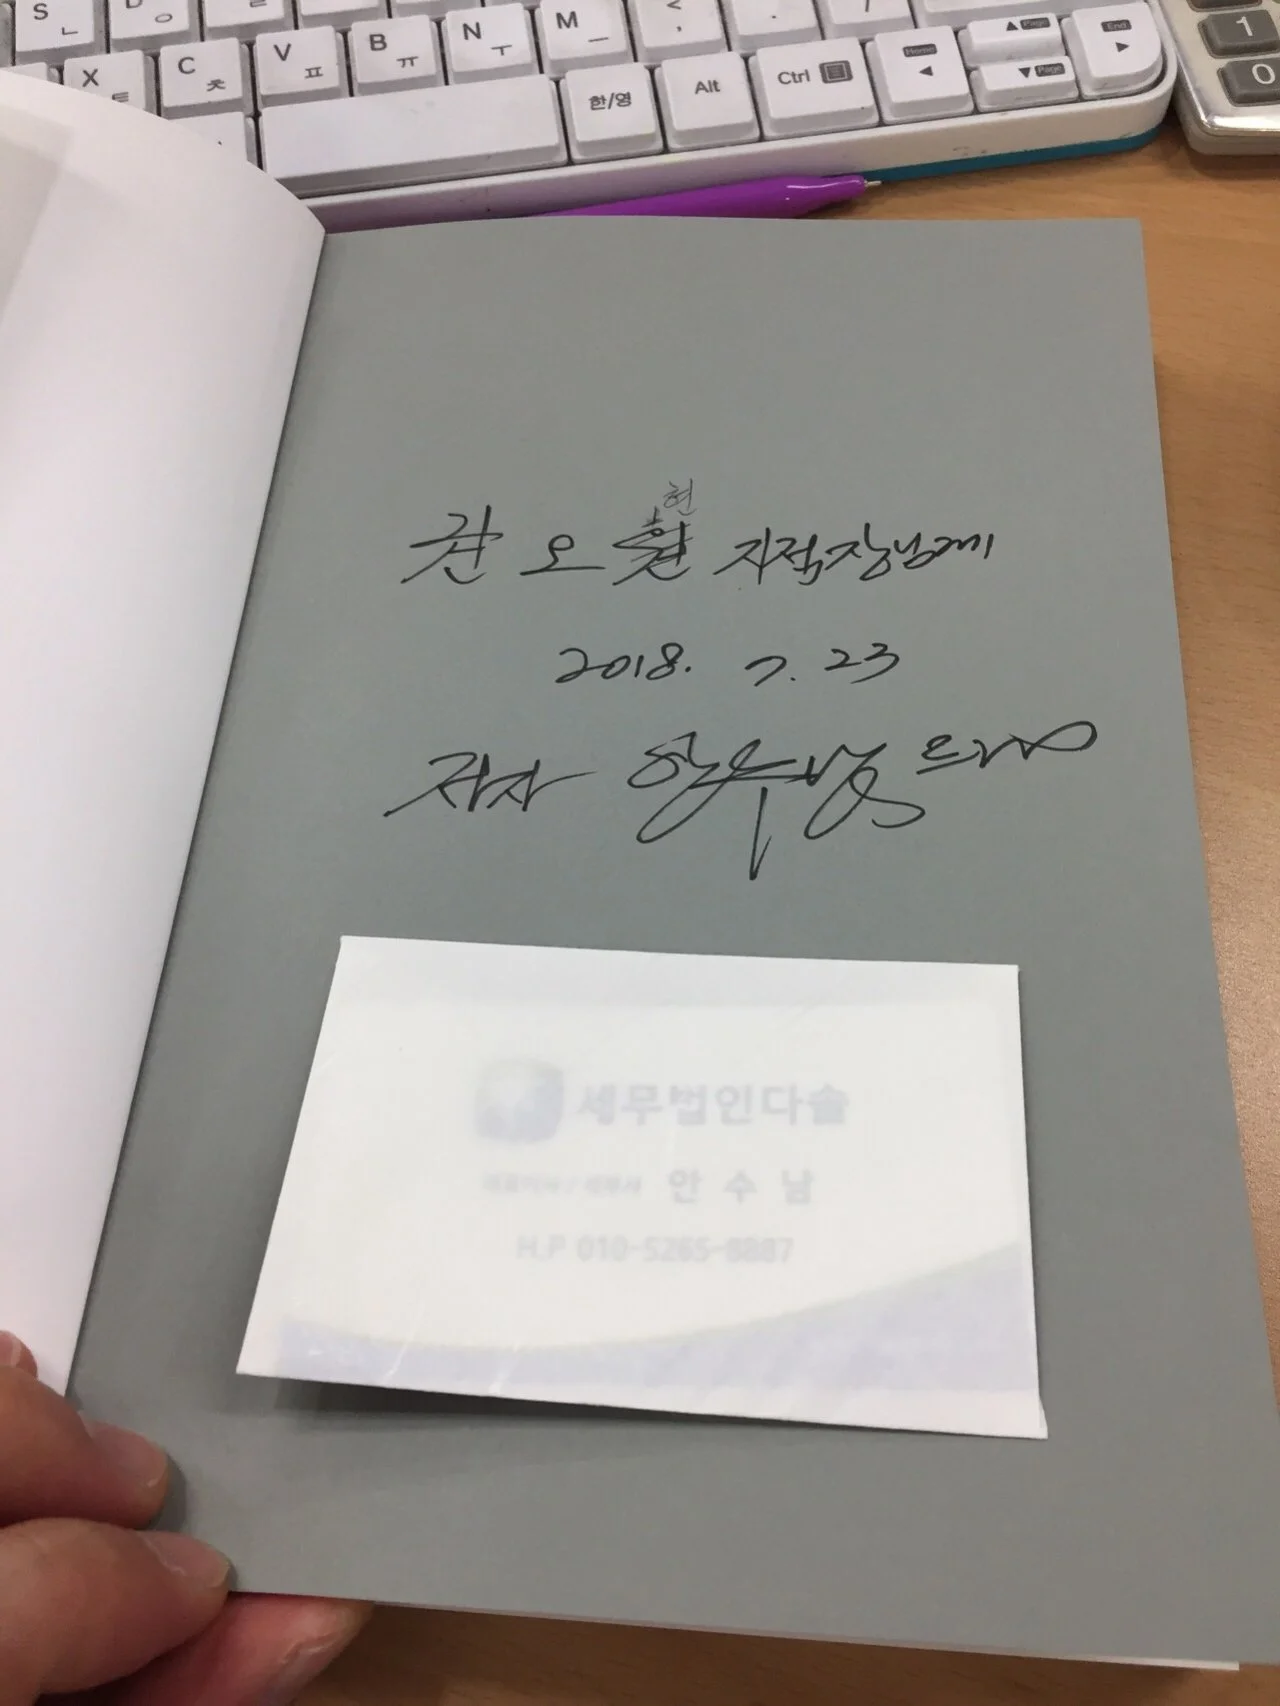 S ㄴ
D ㅇ
X ㅌ
C ㅊ
V ㅍ
B ㅠ
N ㅜ
M ㅡ
< ,
.
/
한/영
Alt
Ctrl
Home
Page
Page
End
1
0
현
권 오 현 지점장님께
2018. 7. 23
저자 안수남 드림
세무법인다솔
대표이사 / 세무사 안 수 남
H.P 010-5265-8887